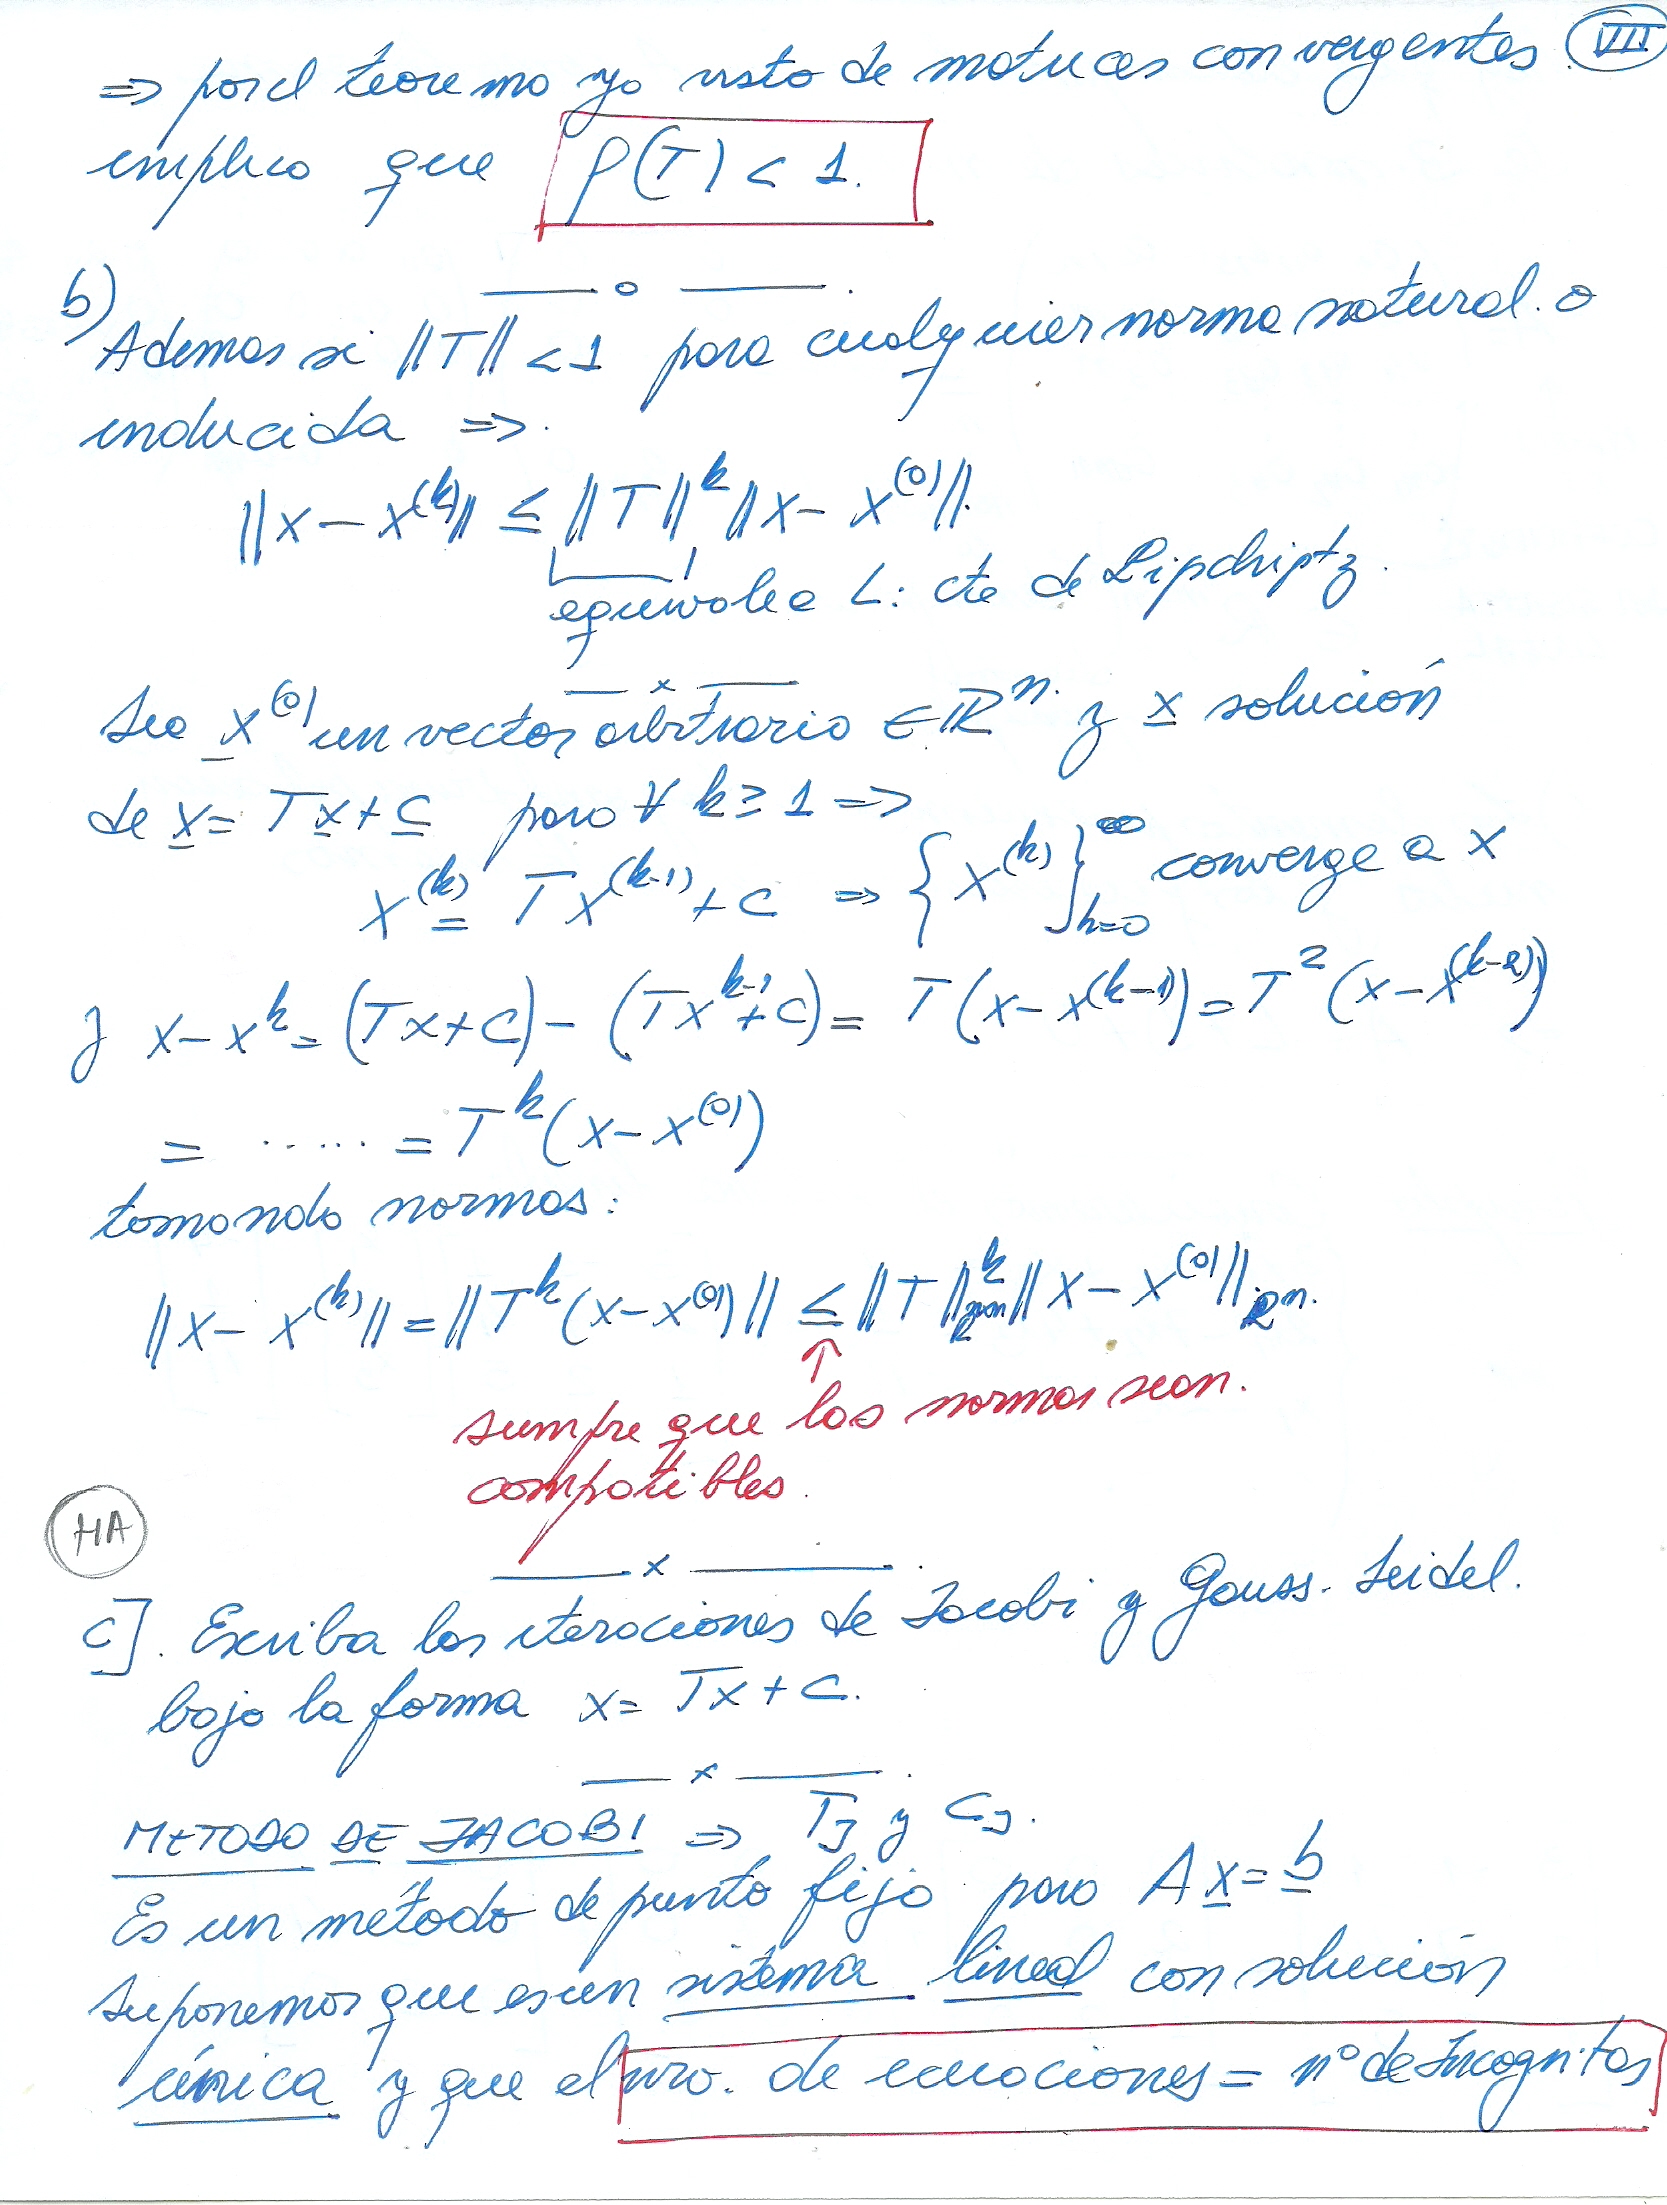 VIII
⇒ por el teorema ya visto de matrices convergentes
implica que ρ(T) < 1.
b)
Ademas si ||T|| < 1 para cualquier norma natural o
inducida ⇒.
||x − x^(k)|| ≤ ||T||^k ||x − x^(0)||.
equivale a L: cte de Lipchiptz.
Sea x^(0) un vector arbitrario ∈ ℝ^n. y x solución
de x = Tx + c para ∀ k ≥ 1 ⇒
x^(k) = Tx^(k-1) + c ⇒ {x^(k)}_{k=0}^∞ converge a x
y x − x^k = (Tx + c) − (Tx^{k-1} + c) = T(x − x^(k-1)) = T^2 (x − x^(k-2))
= ..... = T^k (x − x^(0))
tomando normas:
||x − x^(k)|| = ||T^k (x − x^(0))|| ≤ ||T||^k ||x − x^(0)||_{ℝ^n}.
↑
siempre que las normas sean.
compatibles.
HA
c]. Escriba las iteraciones de Jacobi y Gauss-Seidel.
bajo la forma x = Tx + c.
METODO DE JACOBI ⇒ T_J y C_J.
Es un método de punto fijo para A x = b
suponemos que es un sistema lineal con solución
única y que el nro. de ecuaciones = nº de Incognitas